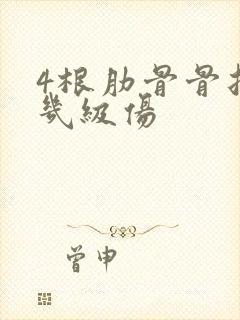 4根肋骨骨折
幾級傷
曾申